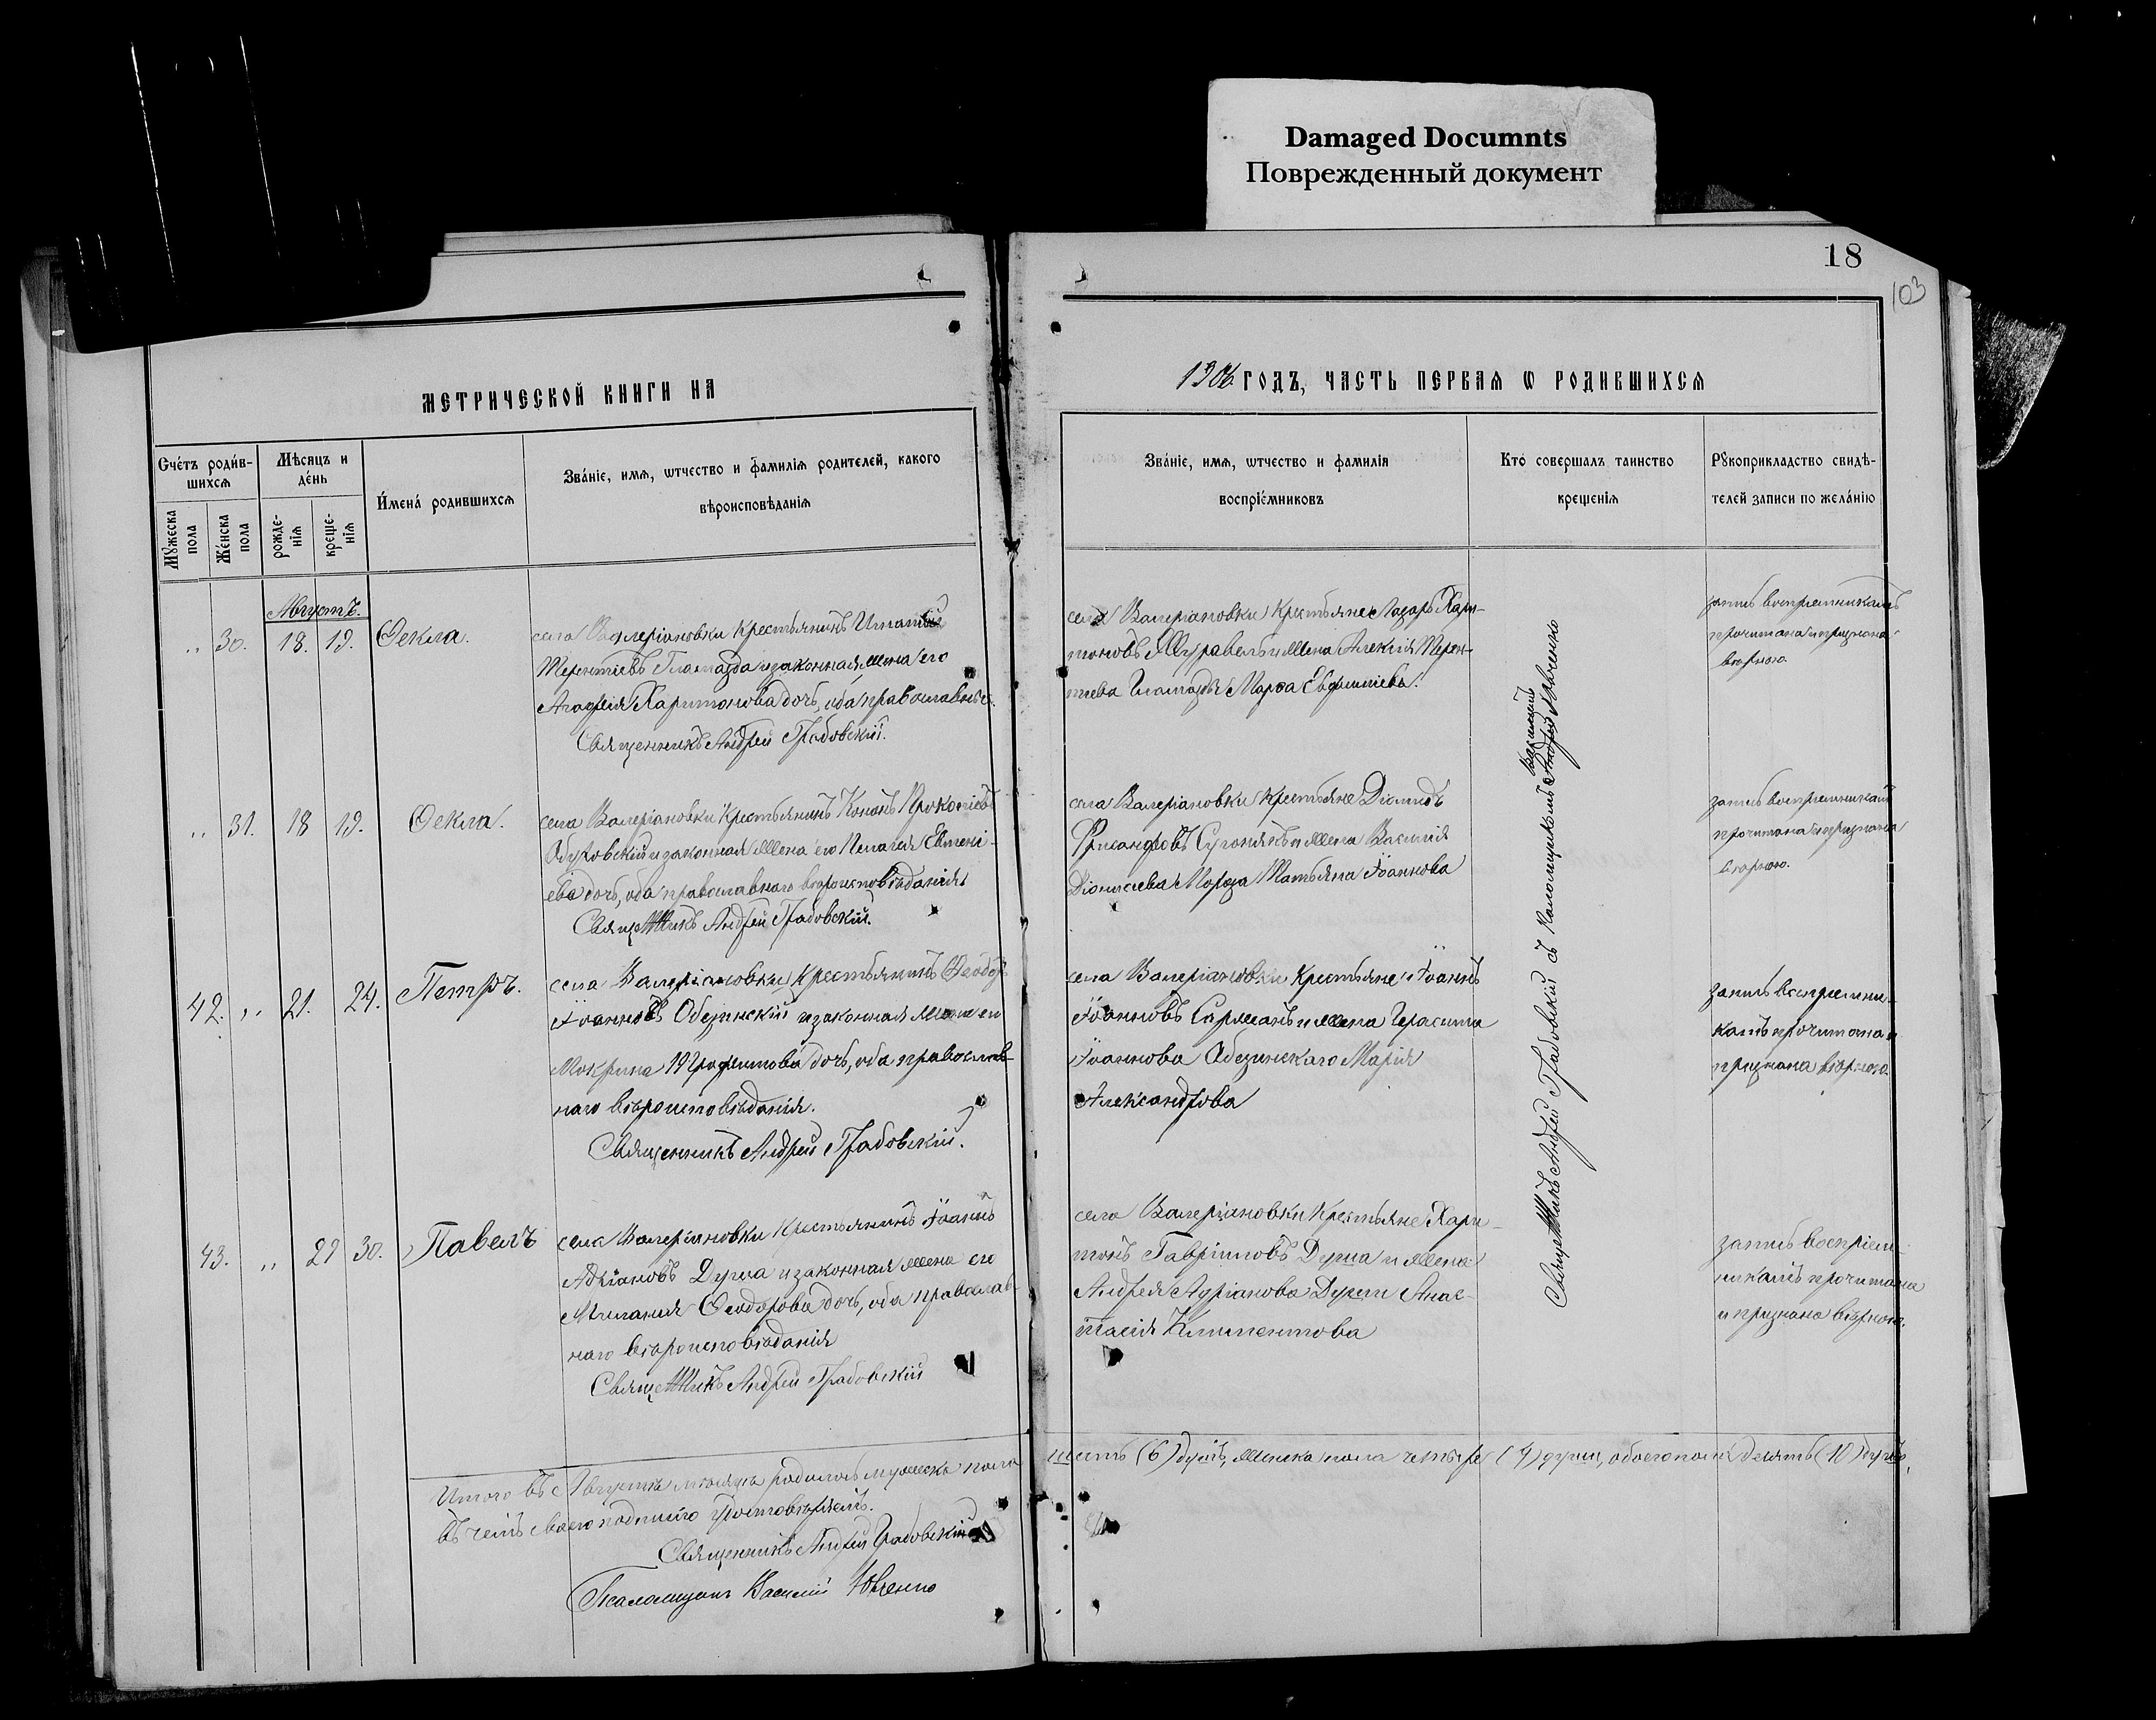 Damaged Documnts
Поврежденный документ
18
103
МЕТРИЧЕСКОЙ КНИГИ НА
1906 ГОДЪ, ЧАСТЬ ПЕРВАѦ Ѡ РОДИВШИХСѦ
Счéтъ роди́вшихсѧ
Мѣсяцъ и дéнь
И҆́мена́ родившихсѧ
Зва́нїе, имѧ, ѡтчество и фамилїѧ родителей, какого
вѣроисповѣданїѧ
Мꙋжеска пола
Же́нска пола
рожде-нїѧ
креще-нїѧ
Зва́нїе, имѧ, ѡтчество и фамилїѧ
воспрїе́мниковъ
Кто̀ совершалъ таинство
крещенїѧ
Рꙋкоприкладство свидѣ-
телей записи по жела́нїю
Августъ.
,, 30. 18. 19. Ѳекла.
села Валеріановки крестьянинъ Игнатій
Терентіевъ Гламазда и законная жена его
Агафія Харитонова дочь, оба православные.
Священникъ Андрей Грабовскій.
села Валеріановки крестьяне Лазарь Хари-
тоновъ Журавель и жена Алексія Терен-
тіева Гламазды Марѳа Евфиміева.
запись воспріемникамъ
прочитана и признана
вѣрною.
,, 31. 18 19. Ѳекла.
села Валеріановки крестьянинъ Кононъ Прокопіевъ
и законная жена его Пелагія Евгені-
ева дочь, оба православнаго вѣроисповѣданія
Священникъ Андрей Грабовскій.
села Валеріановки крестьяне Діомидъ
и жена Василія
Діонисіева Мороза Татьяна Іоаннова
запись воспріемникамъ
прочитана и признана
вѣрною.
42. ,, 21. 24. Петръ.
села Валеріановки крестьянинъ Ѳеодоръ
Іоанновъ Обезинскій и законная жена его
Мокрина Трофимова дочь, оба православ-
наго вѣроисповѣданія.
Священникъ Андрей Грабовскій.
села Валеріановки крестьяне Іоаннъ
Іоанновъ и жена Герасима
Іоаннова Обезинскаго Марія
Александрова
запись воспріемни-
камъ прочитана и
признана вѣрною.
43. ,, 29 30. Павелъ
села Валеріановки крестьянинъ Іоаннъ
Адріановъ Дурта и законная жена его
Меланія Ѳеодорова дочь, оба православ-
наго вѣроисповѣданія
Священникъ Андрей Грабовскій
села Валеріановки крестьяне Хари-
тонъ Гавріиловъ и жена
Андрея Адріанова Анас-
тасія Климентова
запись воспріем-
никамъ прочитана
и признана вѣрною.
Священникъ Андрей Грабовскій съ псаломщикомъ
Итого въ Августѣ мѣсяцѣ родилось мужеска пола шесть (6) душъ, женска пола четыре (4) души, обоего пола десять (10) душъ,
въ чемъ своею подписью удостовѣряемъ.
Священникъ Андрей Грабовскій
Псаломщикъ Василій Ювченко